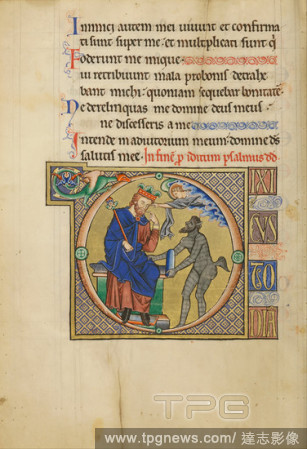 Inimici autem mei uiuunt et confirma
ti sunt super me: et multiplicati sunt q
oderunt me inique.
Qui retribuunt mala pro bonis detrahe
bant michi: quoniam sequebar bonitatē
Ne derelinquas me domine deus meus:
ne discesseris a me
Intende in adiutorium meum: domine ds
salutis mee. In finē p iditum psalmus dd
DIXI
TO
DIA
TPG
www.tpgnews.com/ 達志影像